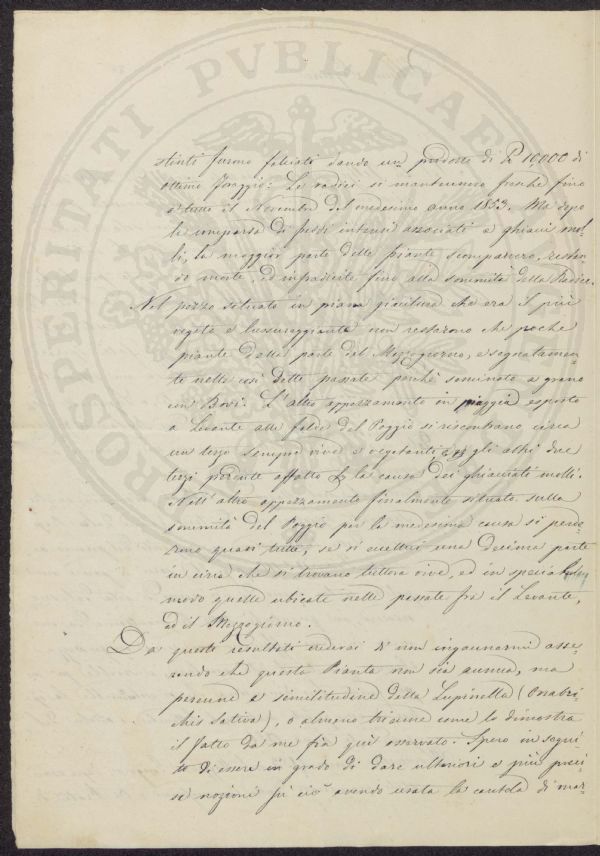 PROSPERITATI PVBLICAE
stenti furono falciati dando un prodotto di ℔ 10000 di
ottimo foraggio: Le radici si mantennero fresche fino
a tutto il Novembre del medesimo anno 1853. Ma dopo
la comparsa di freddi intensi associati a ghiacci mol-
li, la maggior parte delle piante scomparvero, restan-
do morte, ed infracidite fino alla sommità della Radice.
Nel pezzo situato in piana giacitura che era il più
vegeto e lussureggiante non restarono che poche
piante dalla parte del Mezzogiorno, e segnatamen-
te nelle così dette passate perchè seminato a grano
con Bovi. L'altro appezzamento in piaggia esposto
a Levante alle falde del Poggio si riscontrano circa
un terzo sempre vive e vegetanti, e gli altri due
terzi perente affatto per la causa dei ghiacciati molli.
Nell'altro appezzamento finalmente situato sulla
sommità del Poggio per la medesima causa si perde-
rono quasi tutte, se si eccettui una decima parte
in circa che si trovano tuttora vive, ed in special
modo quelle ubicate nelle passate fra il Levante,
ed il Mezzogiorno.
Da questi resultati crederei di non ingannarmi asse-
rendo che questa Pianta non sia annua, ma
perenne a similitudine della Lupinella (Onobri-
chis Sativa), o almeno trienne come lo dimostra
il fatto da me fin quì osservato. Spero in segui-
to di essere in grado di dare ulteriori e più preci-
se nozioni su ciò avendo usata la cautela di mar-